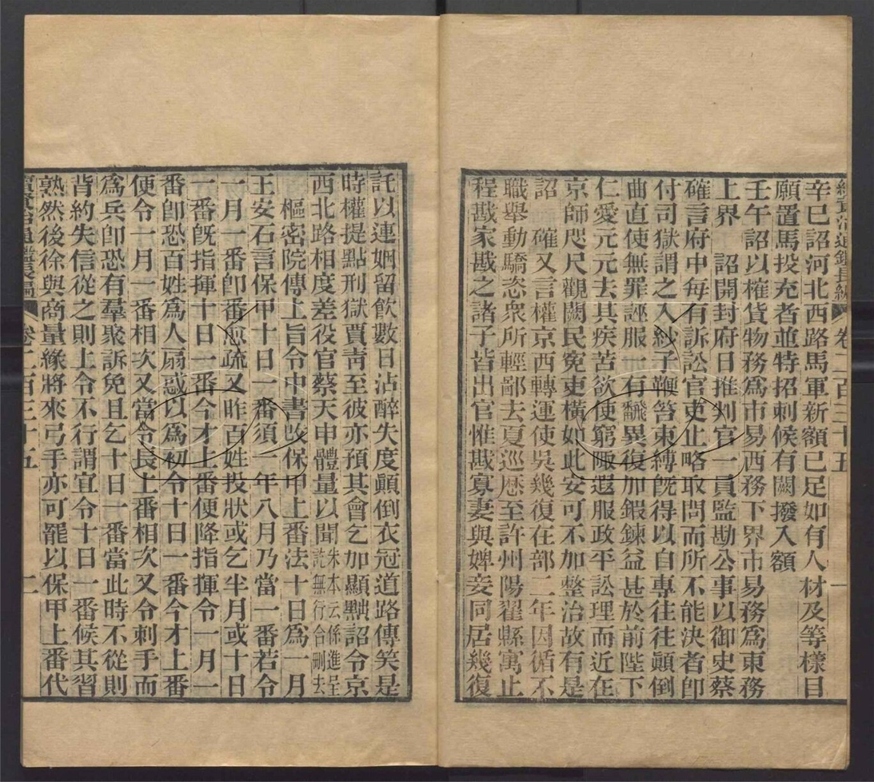 續資治通鑑長編 卷二百三十五 一
辛巳詔河北西路馬軍新額已足如有人材及等樣目
願置馬投充者並特招刺候有闕撥入額
壬午詔以榷貨物務為市易西務下界市易務為東務
上界 詔開封府日推判官一員監勘公事以御史蔡
確言府中每有訴訟官吏止略取問而所不能決者卽
付司獄謂之入紗子鞭笞束縛旣得以自專往往顚倒
曲直使無罪誣服一有翻異復加鍛鍊益甚於前陛下
仁愛元元去其疾苦欲使窮陬遐服政平訟理而近在
京師咫尺觀闕民冤吏橫如此安可不加整治故有是
詔 確又言權京西轉運使吳幾復在部二年因循不
職舉動驕恣衆所輕鄙去夏巡歷至許州陽翟縣寓止
程戡家戡之諸子皆出官惟戡寡妻與婢妾同居幾復
託以連姻留飮數日沾醉失度顚倒衣冠道路傳笑是
時權提點刑獄賈靑至彼亦預其會乞加顯黜詔令京
西北路相度差役官蔡天申體量以聞朱本云係進呈訖無行合刪去
樞密院傳上旨令中書改保甲上番法十日為一月
王安石言保甲十日一番須一年八月乃當一番若令
一月一番卽番愈疏又昨百姓投狀或乞半月或十日
一番旣指揮十日一番今才上番便降指揮令一月一
番卽恐百姓為人扇惑以為初令十日一番今才上番
便令一月一番相次又當令長上番相次又令刺手而
為兵卽恐有羣衆訴免且乞十日一番當此時不從則
背約失信從之則上令不行謂宜令十日一番候其習
熟然後徐與商量緣將來弓手亦可罷以保甲上番代
續資治通鑑長編 卷二百三十五 二